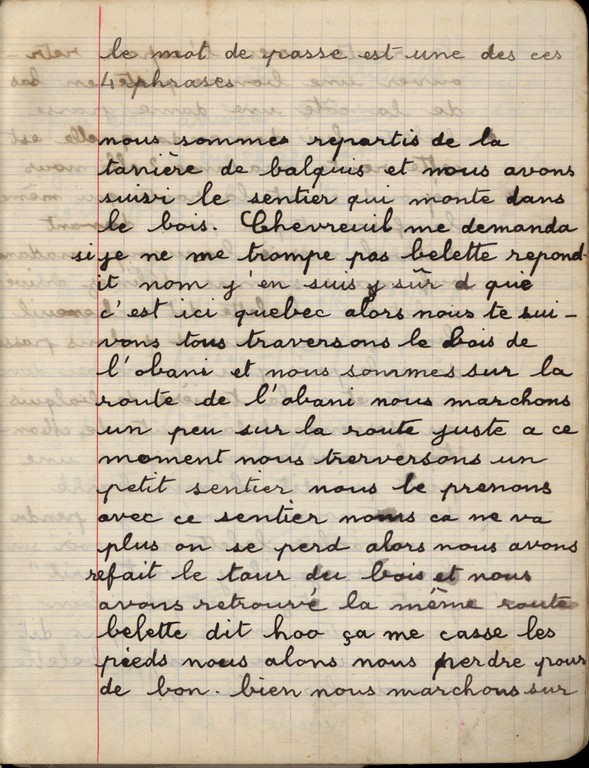 le mot de passe est une des ces
4 phrases
nous sommes repartis de la
tanière de balquis et nous avons
suivi le sentier qui monte dans
le bois. Chevreuil me demanda
si je ne me trompe pas belette repond-
it nom j'en suis sûr d que
c'est ici quebec alors nous te sui-
vons tous traversons le bois de
l'obani et nous sommes sur la
route de l'obani nous marchons
un peu sur la route juste a ce
moment nous trerversons un
petit sentier nous le prenons
avec ce sentier nous ca ne va
plus on se perd alors nous avons
refait le tour du bois et nous
avons retrouvé la même route
belette dit hoo ça me casse les
pieds nous alons nous perdre pour
de bon. bien nous marchons sur